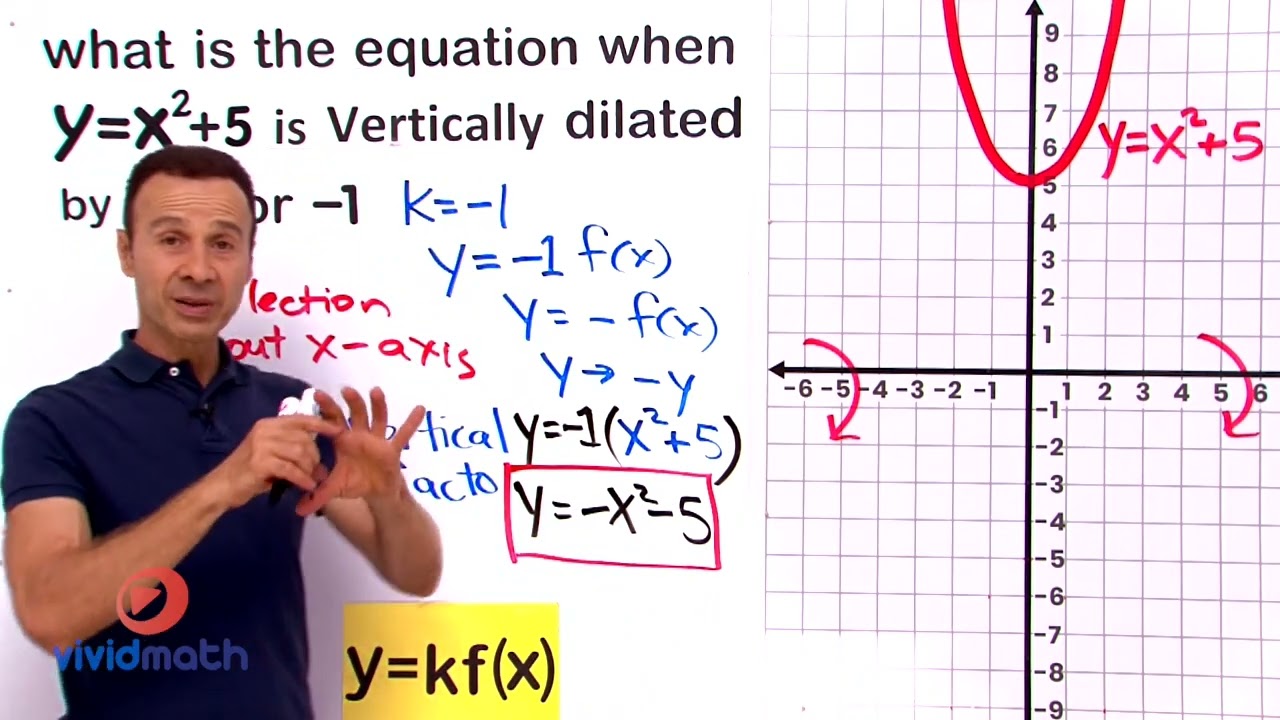 what is the equation when
y=x²+5 is Vertically dilated
by or -1 k=-1
y=-1 f(x)
lection
out x-axis
y=-f(x)
y→-y
rtical y=-1(x²+5)
acto y=-x²-5
y=kf(x)
vividmath
y=x²+5
9
8
7
6
5
4
3
2
1
-6 -5 -4 -3 -2 -1 1 2 3 4 5 6
-1
-2
-3
-4
-5
-6
-7
-8
-9